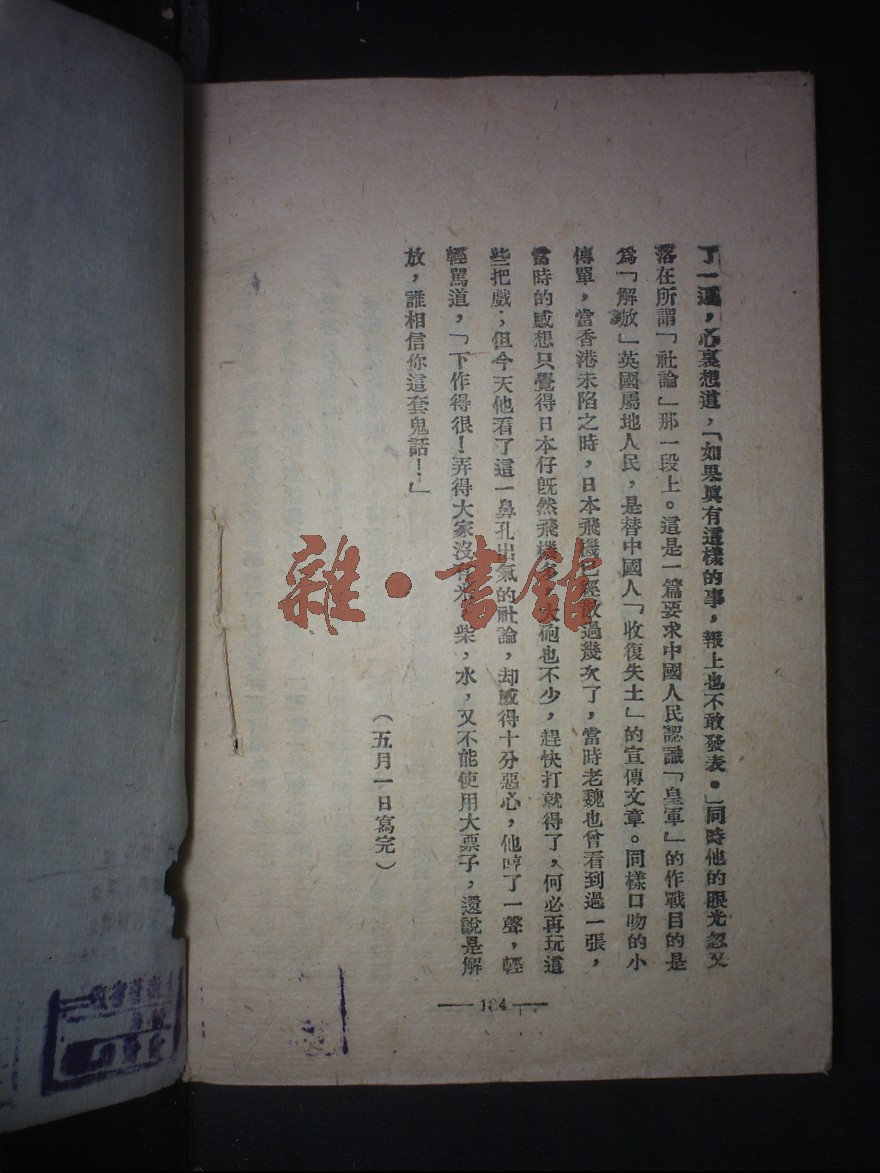 了一遍，心裏想道，「如果眞有這樣的事，報上也不敢發表。」同時他的眼光忽又
落在所謂「社論」那一段上。這是一篇要求中國人民認識「皇軍」的作戰目的是
爲「解放」英國屬地人民，是替中國人「收復失土」的宣傳文章。同樣口吻的小
傳單，當香港未陷之時，日本飛機已經散過幾次了，當時老魏也曾看到過一張，
當時的感想只覺得日本仔旣然飛機多，大砲也不少，趕快打就得了，何必再玩這
些把戲；但今天他看了這一鼻孔出氣的社論，却感得十分惡心，他哼了一聲，輕
輕駡道，「下作得很！弄得大家沒有米，柴，水，又不能使用大票子，還說是解
放，誰相信你這套鬼話！」
（五月一日寫完）
184
雜·書館